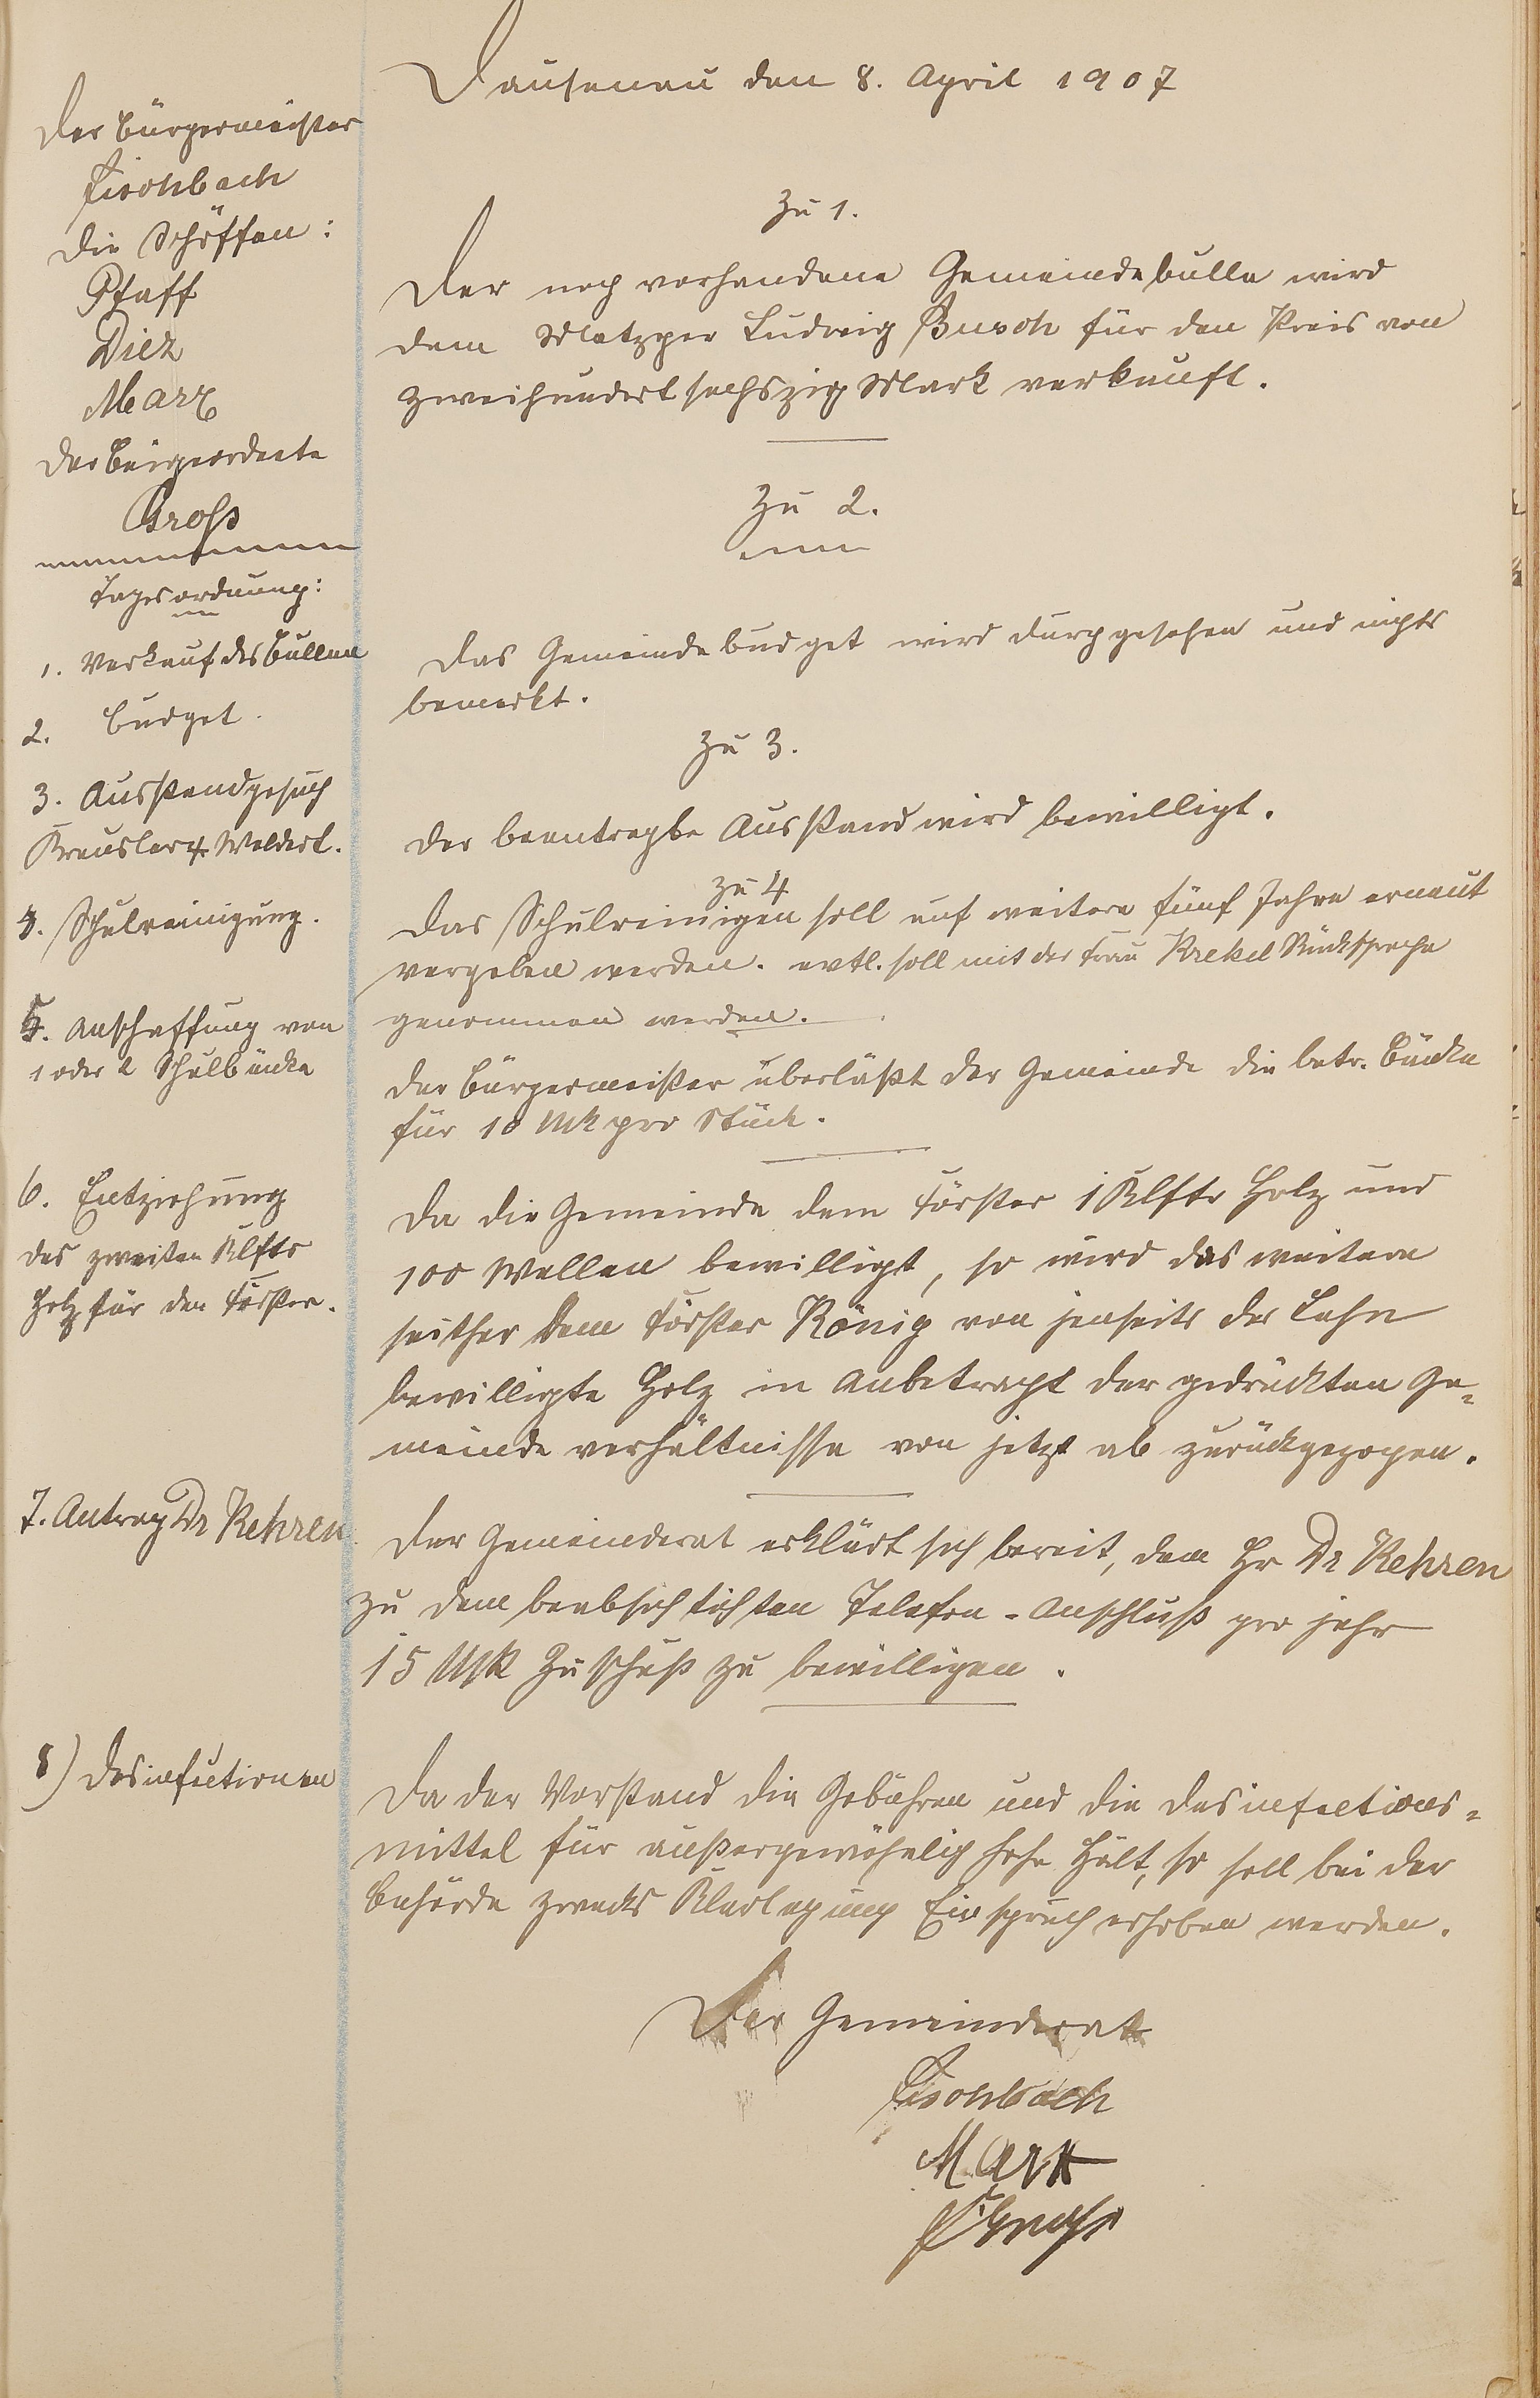 Dausenau den 8. April 1907
Der Bürgermeister
Fischbach
Die Schöffen:
Pfaff
Diez
Marx
Der Beigeordnete
Gross
Tagesordnung:
1. Verkauf des Bullen
2. Budget.
3. Ausstandgesuch
Kreusler & Weldert.
4. Schulreinigung.
5. Anschaffung von
1 oder 2 Schulbänke
6. Entziehung
des zweiten Klftr
Holz für den Förster.
7. Antrag Dr Kehren
8) Desinfectionen
Zu 1.
Der noch vorhandene Gemeindebulle wird
dem Metzger Ludwig Busch für den Preis von
zweihundertsechszig Mark verkauft.
Zu 2.
Das Gemeindebudget wird durchgesehen und nichts
bemerkt.
Zu 3.
Der beantragte Ausstand wird bewilligt.
Zu 4
Das Schulreinigen soll auf weitere fünf Jahre erneut
vergeben werden. evtl. soll mit der Frau Krekel Rücksprache
genommen werden.
Der Bürgermeister überläßt der Gemeinde die betr. Bänke
für 10 Mk pro Stück.
Da die Gemeinde dem Förster 1 Klftr Holz und
100 Wellen bewilligt, so wird das weitere
seither dem Förster König von jenseits der Lahn
bewilligte Holz in Anbetracht der gedrückten Ge-
meindeverhältnisse von jetzt ab zurückgezogen.
Der Gemeinderat erklärt sich bereit, dem Hr Dr Kehren
zu dem beabsichtichten Telefon-Anschluß pro Jahr
15 Mk Zuschuß zu bewilligen.
Da der Vorstand die Gebühren und die Desinfections-
mittel für außergewöhnlich hohe hält, so soll bei der
Behörde zwecks Klarlegung Einspruch erhoben werden.
Der Gemeinderat
Fischbach
Marx
Gross